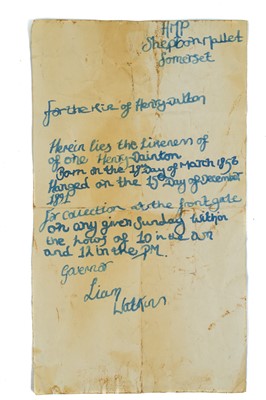 HMP
Shepton Mallet
Somerset
for the of Henry Dainton
Herein lies the Likeness of
of one Henry Dainton
Born on the Day of March 1856
Hanged on the 15th Day of December
1891
for Collection at the front gate
on any given Sunday within
the hours of 10 in the am
and 12 in the PM.
Governor
Liam
Watkins